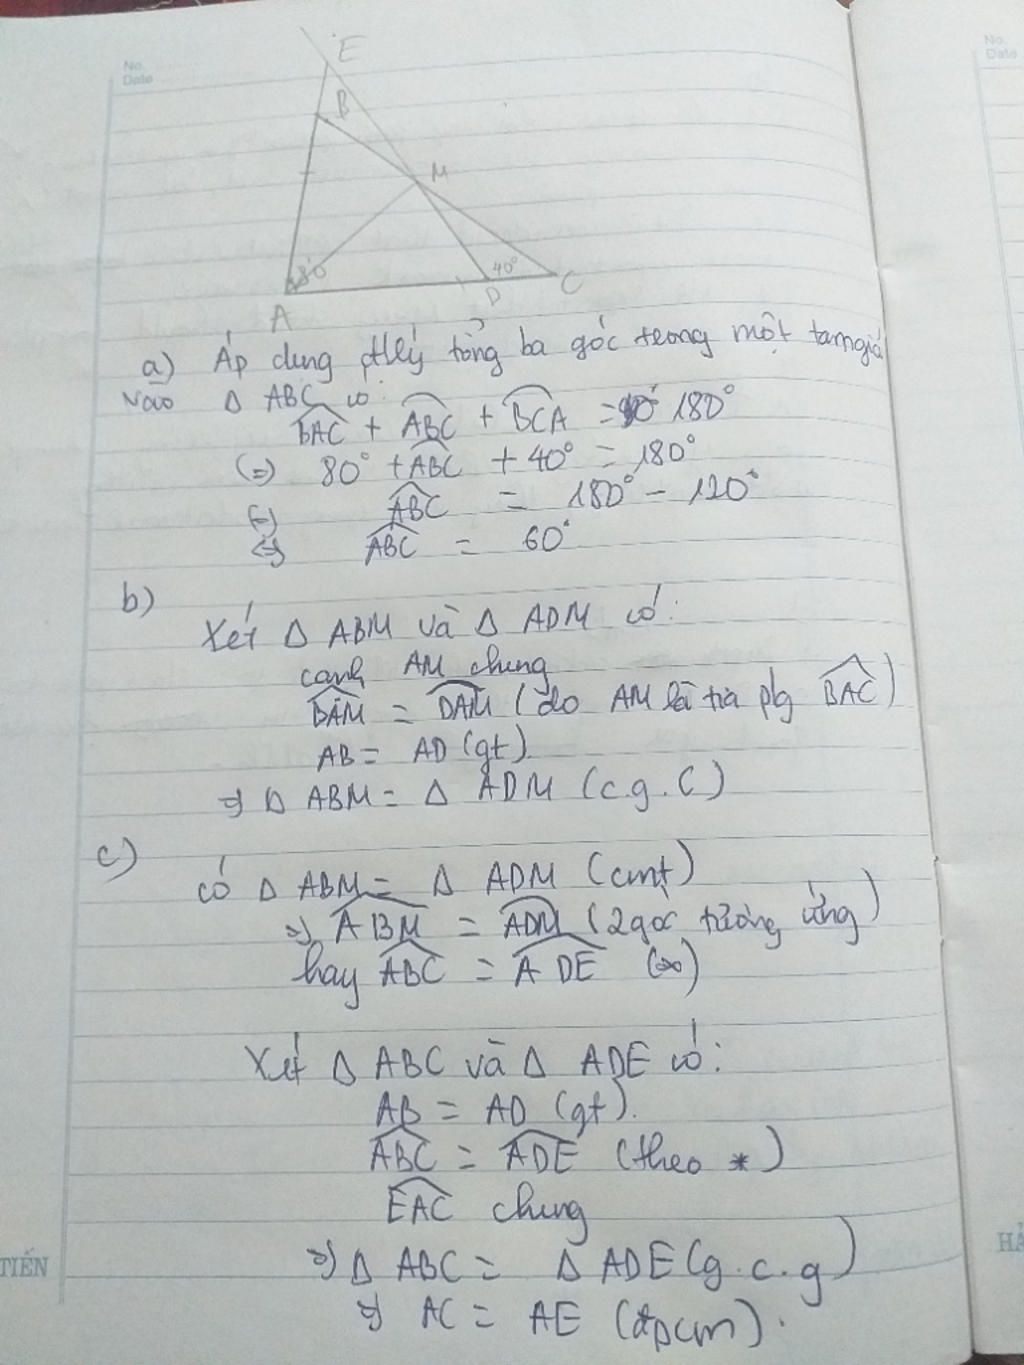 No.
Date
No.
Date
E
B
M
A
80°
40°
D
C
a) Áp dụng đlý tổng ba góc trong một tam giá
vào Δ ABC có:
BAC + ABC + BCA = 180°
(=) 80° + ABC + 40° = 180°
(=) ABC = 180° - 120°
(=) ABC = 60°
b)
Xét Δ ABM và Δ ADM có:
cạnh AM chung
BAM = DAM (do AM là tia p/g BAC)
AB = AD (gt)
=> Δ ABM = Δ ADM (c.g.c)
c)
Có Δ ABM = Δ ADM (cmt)
=> ABM = ADM (2 góc tương ứng)
hay ABC = ADE (*)
Xét Δ ABC và Δ ADE có:
AB = AD (gt).
ABC = ADE (theo *)
EAC chung
=> Δ ABC = Δ ADE (g.c.g)
=> AC = AE (đpcm).
TIẾN
HẢ